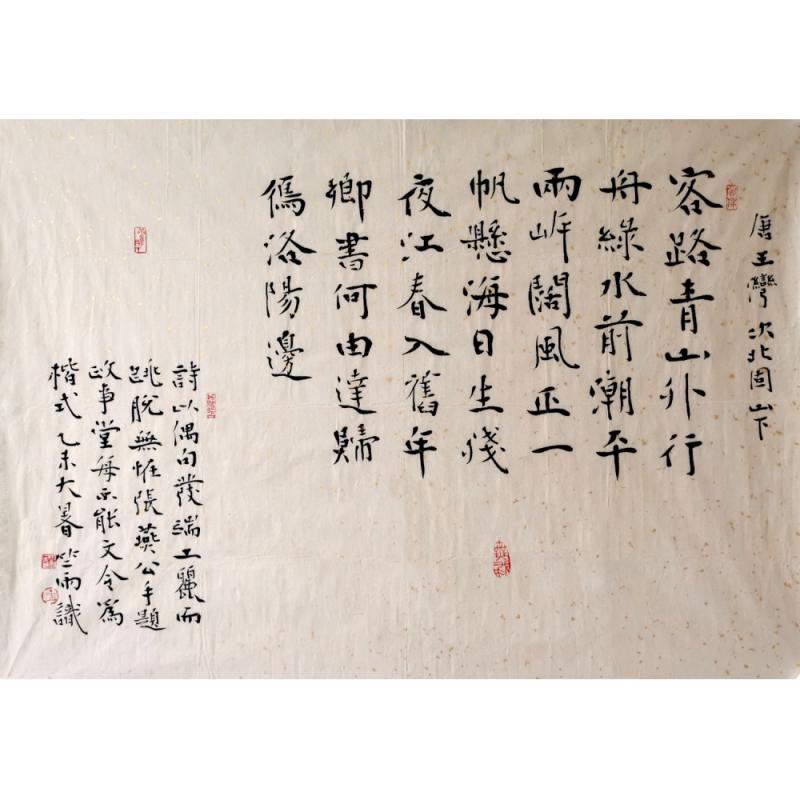 唐王灣次北固山下
客路青山外行
舟綠水前潮平
兩岸闊風正一
帆懸海日生殘
夜江春入舊年
鄉書何由達歸
鴈洛陽邊
詩以偶句發端工麗而
跳脫無怪張燕公手題
政事堂每示能文令爲
楷式 乙未大暑竺雨識